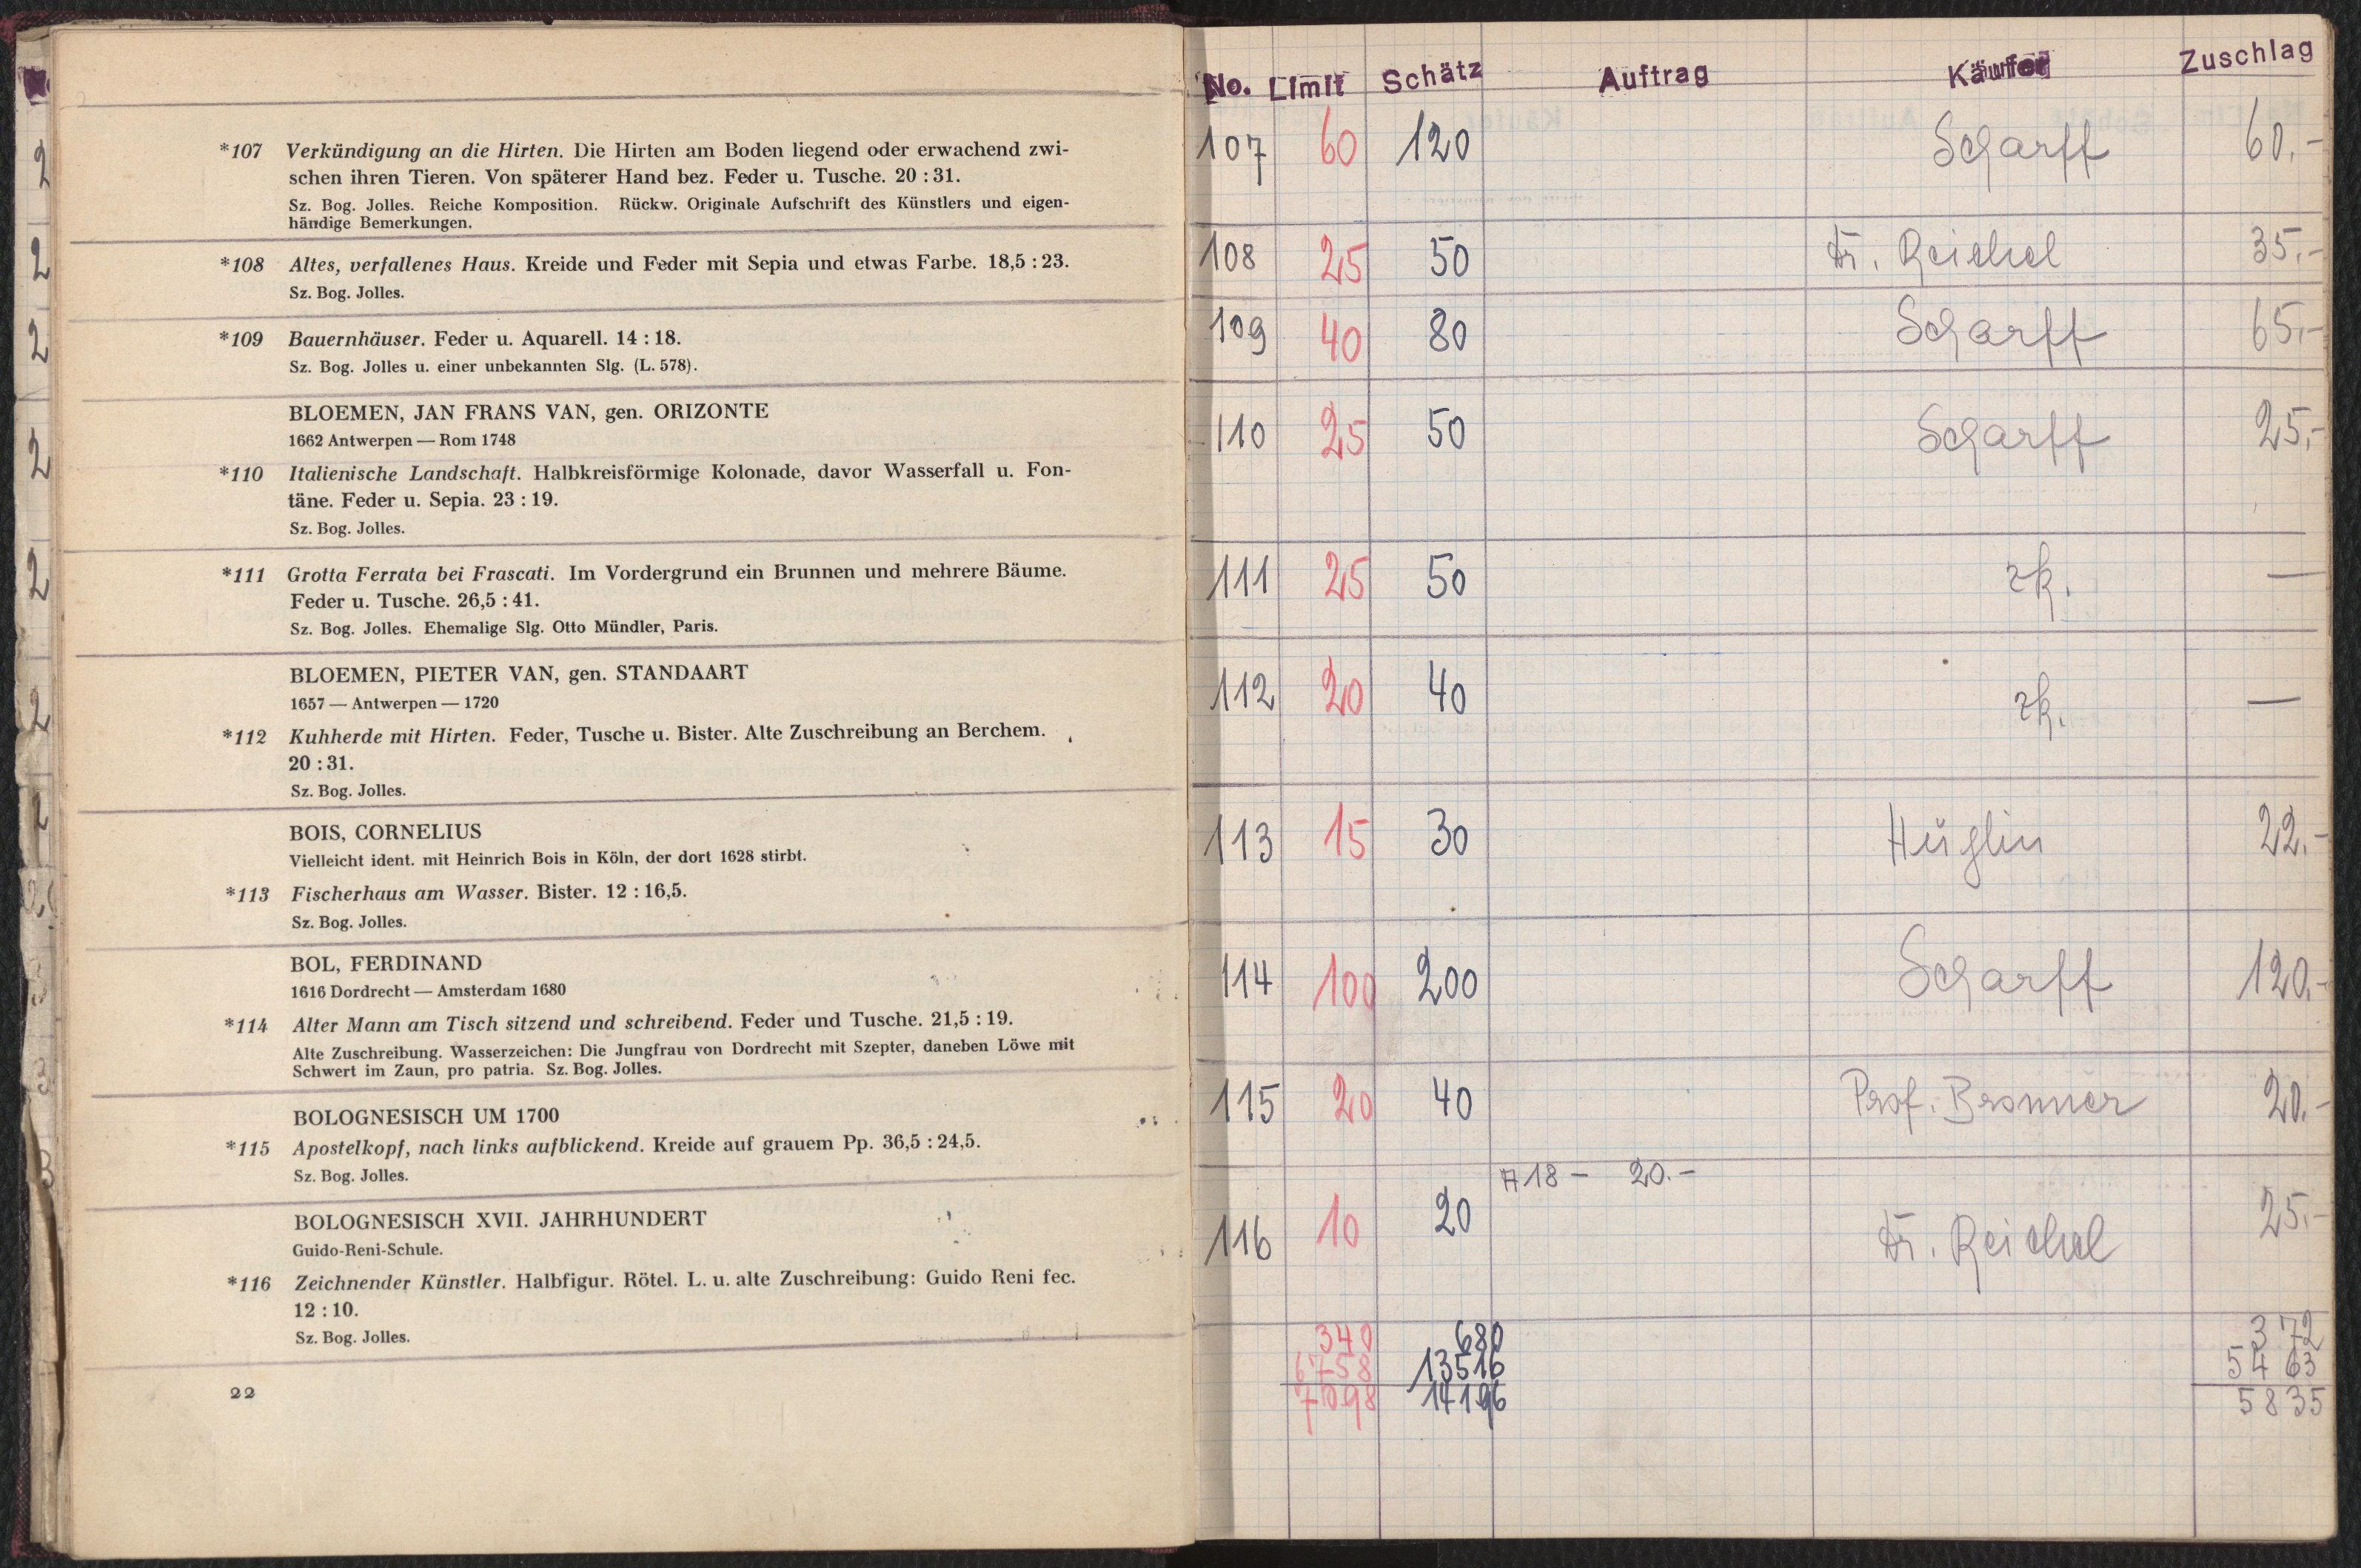 *107 Verkündigung an die Hirten. Die Hirten am Boden liegend oder erwachend zwi-
schen ihren Tieren. Von späterer Hand bez. Feder u. Tusche. 20 : 31.
Sz. Bog. Jolles. Reiche Komposition. Rückw. Originale Aufschrift des Künstlers und eigen-
händige Bemerkungen.
*108 Altes, verfallenes Haus. Kreide und Feder mit Sepia und etwas Farbe. 18,5 : 23.
Sz. Bog. Jolles.
*109 Bauernhäuser. Feder u. Aquarell. 14 : 18.
Sz. Bog. Jolles u. einer unbekannten Slg. (L. 578).
BLOEMEN, JAN FRANS VAN, gen. ORIZONTE
1662 Antwerpen — Rom 1748
*110 Italienische Landschaft. Halbkreisförmige Kolonade, davor Wasserfall u. Fon-
täne. Feder u. Sepia. 23 : 19.
Sz. Bog. Jolles.
*111 Grotta Ferrata bei Frascati. Im Vordergrund ein Brunnen und mehrere Bäume.
Feder u. Tusche. 26,5 : 41.
Sz. Bog. Jolles. Ehemalige Slg. Otto Mündler, Paris.
BLOEMEN, PIETER VAN, gen. STANDAART
1657 — Antwerpen — 1720
*112 Kuhherde mit Hirten. Feder, Tusche u. Bister. Alte Zuschreibung an Berchem.
20 : 31.
Sz. Bog. Jolles.
BOIS, CORNELIUS
Vielleicht ident. mit Heinrich Bois in Köln, der dort 1628 stirbt.
*113 Fischerhaus am Wasser. Bister. 12 : 16,5.
Sz. Bog. Jolles.
BOL, FERDINAND
1616 Dordrecht — Amsterdam 1680
*114 Alter Mann am Tisch sitzend und schreibend. Feder und Tusche. 21,5 : 19.
Alte Zuschreibung. Wasserzeichen: Die Jungfrau von Dordrecht mit Szepter, daneben Löwe mit
Schwert im Zaun, pro patria. Sz. Bog. Jolles.
BOLOGNESISCH UM 1700
*115 Apostelkopf, nach links aufblickend. Kreide auf grauem Pp. 36,5 : 24,5.
Sz. Bog. Jolles.
BOLOGNESISCH XVII. JAHRHUNDERT
Guido-Reni-Schule.
*116 Zeichnender Künstler. Halbfigur. Rötel. L. u. alte Zuschreibung: Guido Reni fec.
12 : 10.
Sz. Bog. Jolles.
22
No. Limit Schätz Auftrag Käufer Zuschlag
107 60 120 Scharff 60.-
108 25 50 Dr. Reichel 35.-
109 40 80 Scharff 65.-
110 25 50 Scharff 25.-
111 25 50 zk. —
112 20 40 zk. —
113 15 30 Hüglin 22.-
114 100 200 Scharff 120.-
115 20 40 Prof. Bronner 20.-
A 18 - 20.-
116 10 20 Dr. Reichel 25.-
340 680 372
6758 13516 5463
7098 14196 5835